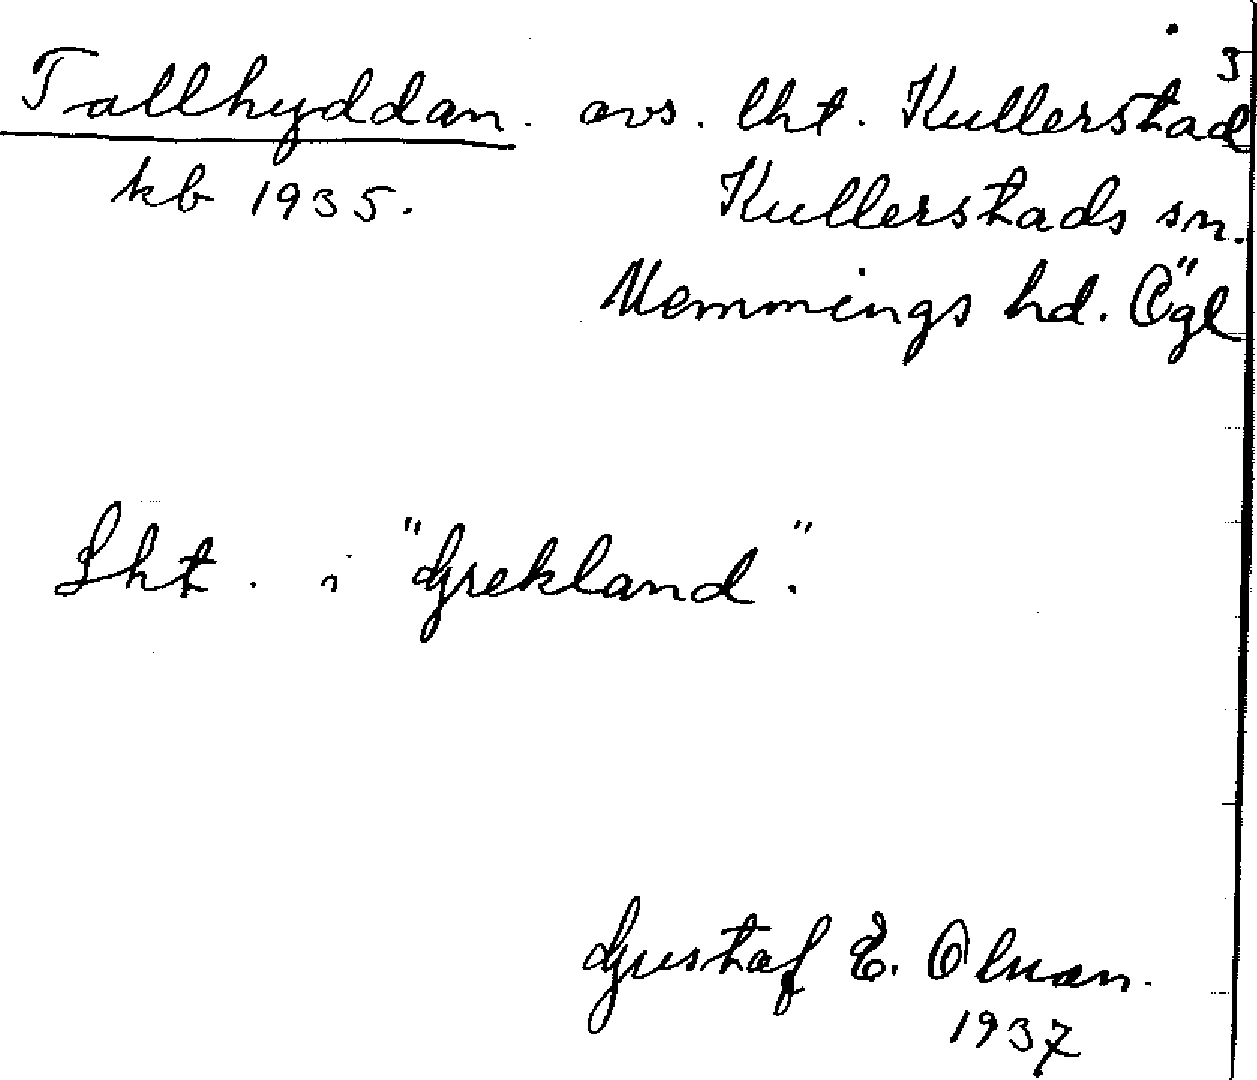 Tallhyddan. avs. lht. Kullerstad 3
kb 1935. Kullerstads sn.
Memmings hd. Ögl
Lht. i "Grekland".
Gustaf E. Olman.
1937